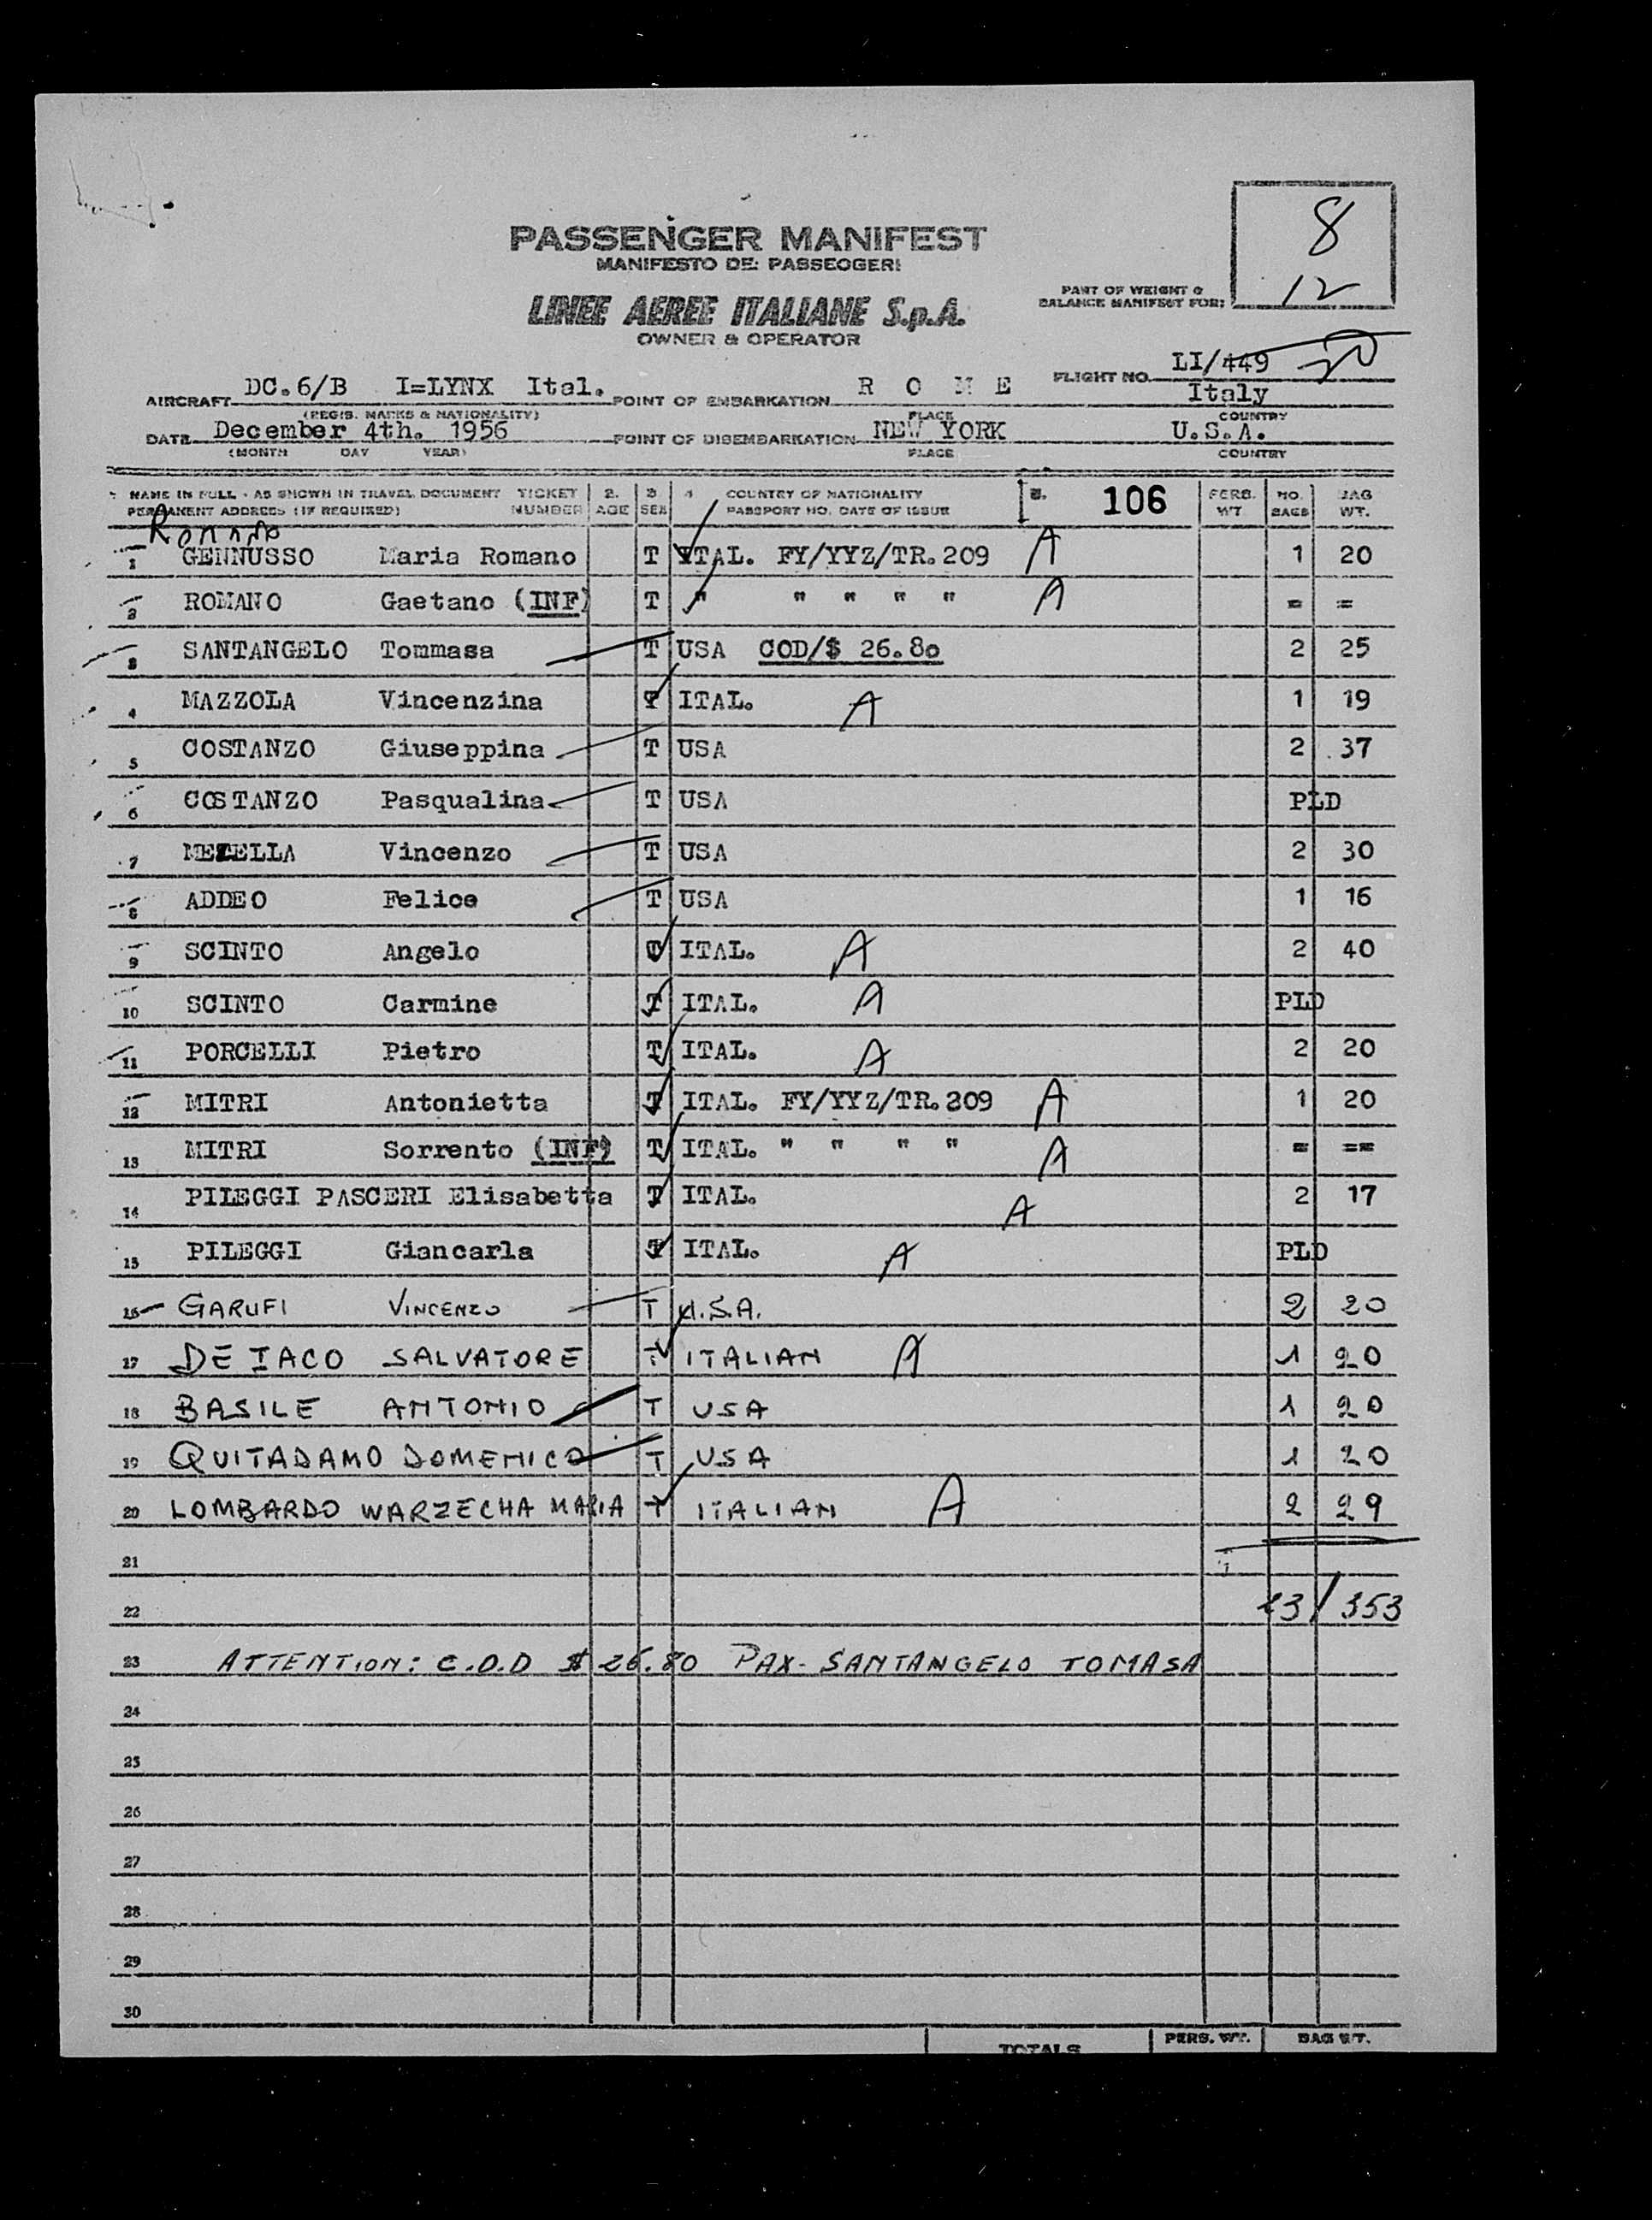 PASSENGER MANIFEST
MANIFESTO DEI PASSEGGERI
LINEE AEREE ITALIANE S.p.A.
OWNER & OPERATOR
8
12
PART OF WEIGHT &
BALANCE MANIFEST FOR:
AIRCRAFT DC.6/B I=LYNX Ital. POINT OF EMBARKATION R O M E FLIGHT NO. LI/449 Italy
(REGIS. MARKS & NATIONALITY) PLACE COUNTRY
DATE December 4th. 1956 POINT OF DISEMBARKATION NEW YORK U.S.A.
(MONTH DAY YEAR) PLACE COUNTRY
NAME IN FULL - AS SHOWN IN TRAVEL DOCUMENT TICKET 2. 3 4 COUNTRY OF NATIONALITY 5. 106 PERS. NO. BAG
PERMANENT ADDRESS (IF REQUIRED) NUMBER AGE SEX PASSPORT NO. DATE OF ISSUE WT BAGS WT.
Romano
1 GENNUSSO Maria Romano T ITAL. FY/YYZ/TR.209 A 1 20
2 ROMANO Gaetano (INF) T " " " " " A = =
3 SANTANGELO Tommasa T USA COD/$ 26.80 2 25
4 MAZZOLA Vincenzina T ITAL. A 1 19
5 COSTANZO Giuseppina T USA 2 37
6 COSTANZO Pasqualina T USA PLD
7 Vincenzo T USA 2 30
8 ADDEO Felice T USA 1 16
9 SCINTO Angelo T ITAL. A 2 40
10 SCINTO Carmine T ITAL. A PLD
11 PORCELLI Pietro T ITAL. A 2 20
12 MITRI Antonietta T ITAL. FY/YYZ/TR.209 A 1 20
13 MITRI Sorrento (INF) T ITAL. " " " " A = ==
14 PILEGGI PASCERI Elisabetta T ITAL. A 2 17
15 PILEGGI Giancarla T ITAL. A PLD
16 GARUFI VINCENZO T U.S.A. 2 20
17 DE IACO SALVATORE T ITALIAN A 1 20
18 BASILE ANTONIO T USA 1 20
19 QUITADAMO DOMENICO T USA 1 20
20 LOMBARDO WARZECHA MARIA T ITALIAN A 2 29
21
22 23/353
23 ATTENTION: C.O.D $ 26.80 PAX- SANTANGELO TOMASA
24
25
26
27
28
29
30
TOTALS PERS. WT. BAG WT.